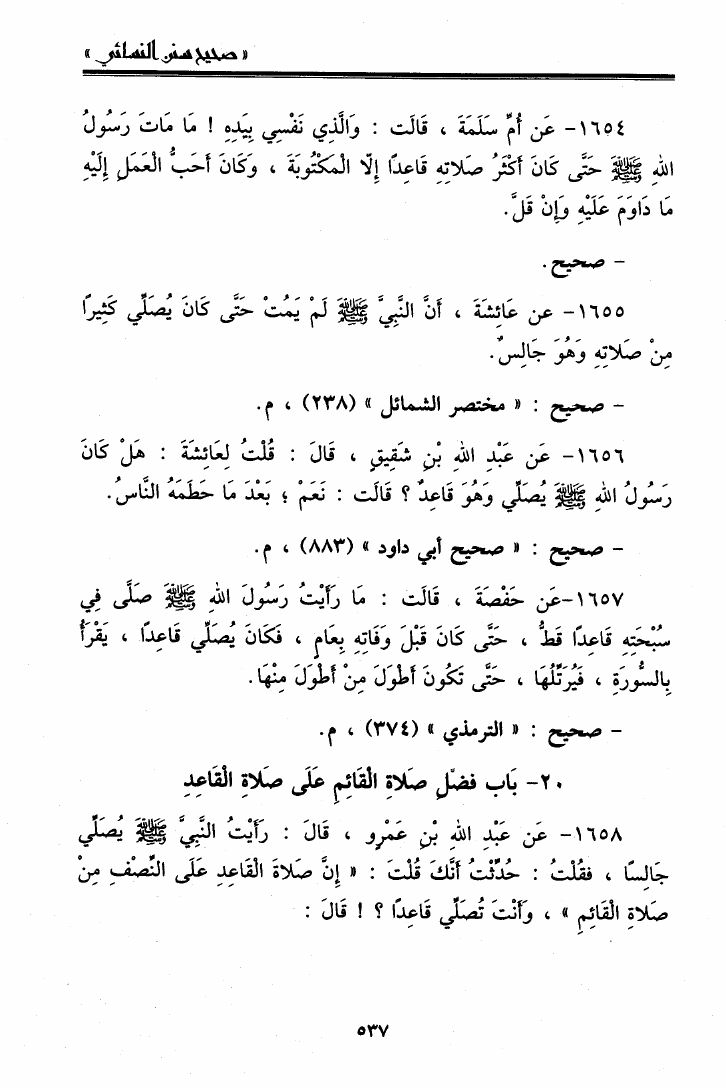 « صحيح سنن النسائي »
١٦٥٤- عَن أُمِّ سَلَمَةَ ، قَالَت : وَالَّذِي نَفْسِي بِيَدِهِ ! مَا مَاتَ رَسُولُ
اللهِ ﷺ حَتَّى كَانَ أَكْثَرُ صَلاتِهِ قَاعِدًا إِلَّا الْمَكْتُوبَةَ ، وَكَانَ أَحَبُّ الْعَمَلِ إِلَيْهِ
مَا دَاوَمَ عَلَيْهِ وَإِنْ قَلَّ.
- صحيح.
١٦٥٥- عن عَائِشَةَ ، أَنَّ النَّبِيَّ ﷺ لَمْ يَمُتْ حَتَّى كَانَ يُصَلِّي كَثِيرًا
مِنْ صَلاتِهِ وَهُوَ جَالِسٌ.
- صحيح : « مختصر الشمائل » (٢٣٨) ، م.
١٦٥٦- عَن عَبْدِ اللهِ بْنِ شَقِيقٍ ، قَالَ : قُلْتُ لِعَائِشَةَ : هَلْ كَانَ
رَسُولُ اللهِ ﷺ يُصَلِّي وَهُوَ قَاعِدٌ ؟ قَالَت : نَعَمْ ؛ بَعْدَ مَا حَطَمَهُ النَّاسُ.
- صحيح : « صحيح أبي داود » (٨٨٣) ، م.
١٦٥٧-عَن حَفْصَةَ ، قَالَت : مَا رَأَيْتُ رَسُولَ اللهِ ﷺ صَلَّى فِي
سُبْحَتِهِ قَاعِدًا قَطُّ ، حَتَّى كَانَ قَبْلَ وَفَاتِهِ بِعَامٍ ، فَكَانَ يُصَلِّي قَاعِدًا ، يَقْرَأُ
بِالسُّورَةِ ، فَيُرَتِّلُهَا ، حَتَّى تَكُونَ أَطْوَلَ مِنْ أَطْوَلَ مِنْهَا.
- صحيح : « الترمذي » (٣٧٤) ، م.
٢٠- بَاب فَضْلِ صَلاةِ الْقَائِمِ عَلَى صَلاةِ الْقَاعِدِ
١٦٥٨- عَن عَبْدِ اللهِ بْنِ عَمْرٍو ، قَالَ : رَأَيْتُ النَّبِيَّ ﷺ يُصَلِّي
جَالِسًا ، فَقُلْتُ : حُدِّثْتُ أَنَّكَ قُلْتَ : « إِنَّ صَلاةَ الْقَاعِدِ عَلَى النِّصْفِ مِنْ
صَلاةِ الْقَائِمِ » ، وَأَنْتَ تُصَلِّي قَاعِدًا ؟ ! قَالَ :
٥٣٧